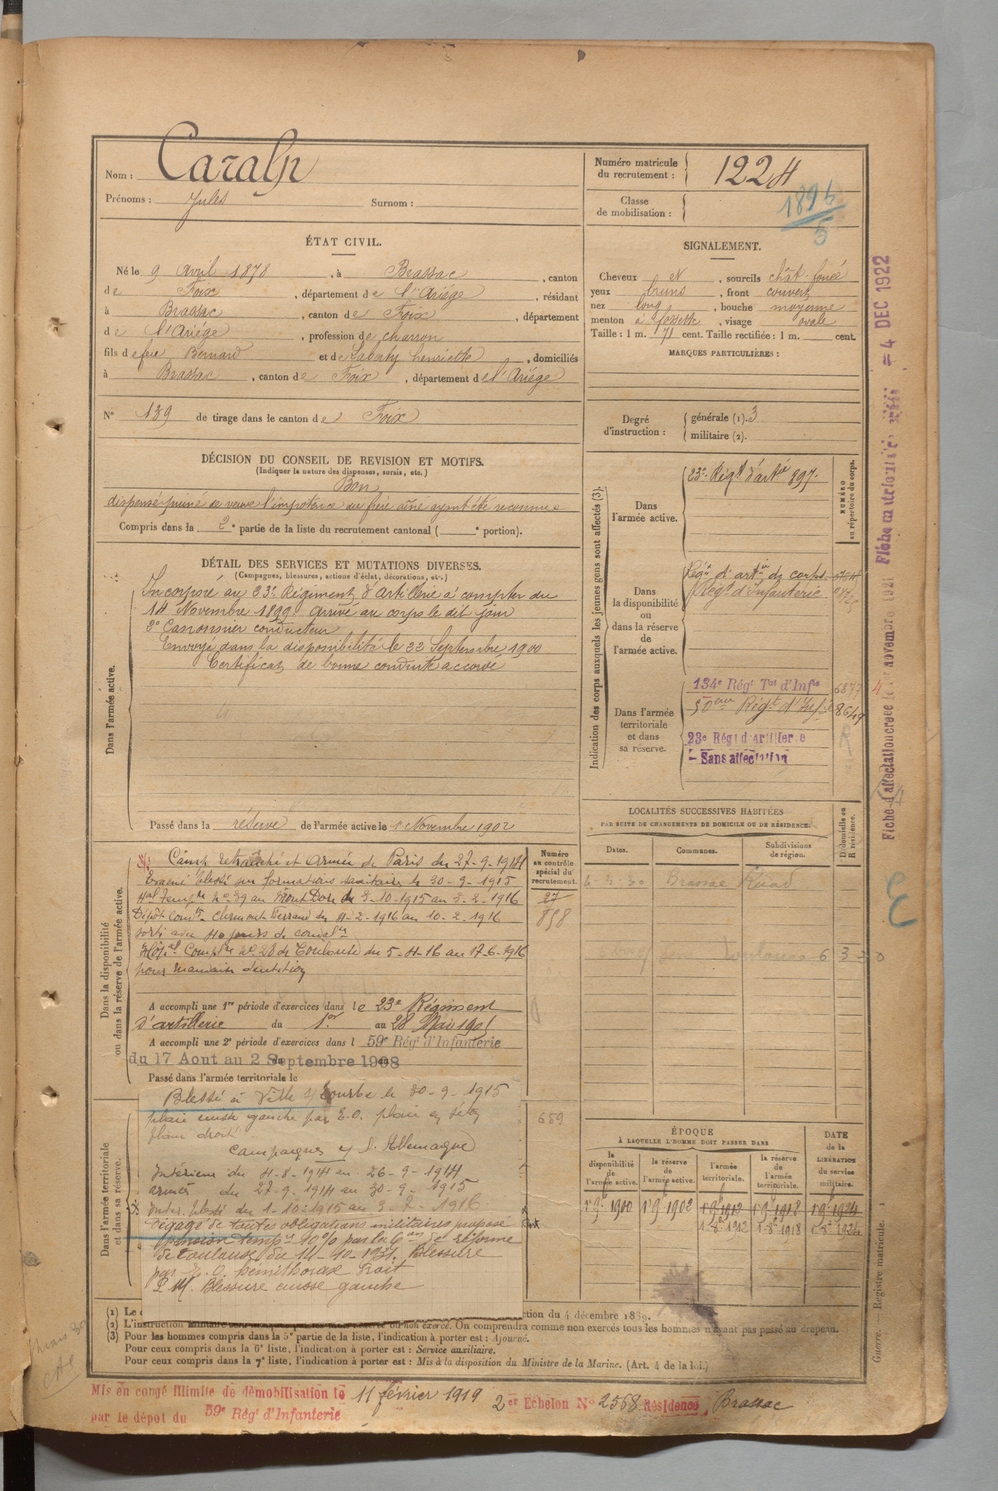 Nom : Caralp
Prénoms : Jules Surnom :
Numéro matricule du recrutement : 1224
Classe de mobilisation : 1896/5
ÉTAT CIVIL.
Né le 9 Avril 1878, à Brassac, canton
de Foix, département de l'Ariège, résidant
à Brassac, canton de Foix, département
de l'Ariège, profession de charron
fils de feu Bernard et de Henriette, domiciliés
à Brassac, canton de Foix, département de l'Ariège
N° 139 de tirage dans le canton de Foix
SIGNALEMENT.
Cheveux N, sourcils chât. foncé
yeux bruns, front couvert
nez long, bouche moyenne
menton à fossette, visage ovale
Taille : 1 m. 71 cent. Taille rectifiée : 1 m. cent.
MARQUES PARTICULIÈRES :
Degré d'instruction : générale (1). 3
militaire (2).
DÉCISION DU CONSEIL DE REVISION ET MOTIFS.
(Indiquer la nature des dispenses, sursis, etc.)
Bon
l'impotence du frère aîné ayant été reconnue
Compris dans la 2e partie de la liste du recrutement cantonal ( e portion).
DÉTAIL DES SERVICES ET MUTATIONS DIVERSES.
(Campagnes, blessures, actions d'éclat, décorations, etc.)
Dans l'armée active.
Incorporé au 23e Régiment d'Artillerie à compter du
14 Novembre 1899. Arrivé au corps le dit jour
2e Canonnier conducteur
Envoyé dans la disponibilité le 22 Septembre 1900
Certificat de bonne conduite accordé
Passé dans la réserve de l'armée active le 1 Novembre 1902
Indication des corps auxquels les jeunes gens sont affectés (3).
NUMÉRO au répertoire du corps.
Dans l'armée active.
23e Régt d'artie 897.
Dans la disponibilité ou dans la réserve de l'armée active.
Régt d'artie de corps
Régt d'infanterie
Dans l'armée territoriale et dans sa réserve.
134e Régt Tal d'Infie 6877
50eme Régt d'Inf. 8649
23e Régt d'Artillerie
Sans affectation
LOCALITÉS SUCCESSIVES HABITÉES
PAR SUITE DE CHANGEMENTS DE DOMICILE OU DE RÉSIDENCE.
Dates. Communes. Subdivisions de région. D. domicile ou R. résidence.
Brassac
Toulouse 6 3 30
Dans la disponibilité ou dans la réserve de l'armée active.
Numéro au contrôle spécial du recrutement.
27
898
Camp retranché et Armée de Paris du 27-9-1914
Evacué blessé sur formations sanitaires le 30-9-1915
Hal Tempre no 39 au Mont Dore du 3-10-1915 au 3-2-1916
Dépôt Clermont Ferrand du 4-2-1916 au 10-2-1916
sorti avec 40 jours de convalce
Hôpal Complre no 28 de Toulouse du 5-4-16 au 17-6-1916
pour mauvaise dentition
A accompli une 1re période d'exercices dans le 23e Régiment
d'artillerie du 1er au 28 Mai 1905
A accompli une 2e période d'exercices dans l 59e Régt d'Infanterie
du 17 Aout au 2 Septembre 1908
Passé dans l'armée territoriale le
Dans l'armée territoriale et dans sa réserve.
659
Blessé à Ville s/ Tourbe le 30-9-1915
plaie cuisse gauche par E.O. plaie
flanc droit
Campagnes c/ l'Allemagne
Intérieur du 4-8-1914 au 26-9-1914
armées du 27-9-1914 au 30-9-1915
Inter. blessé du 1-10-1915 au 3-7-1916
Dégagé de toutes obligations militaires proposé
pension tempe 10% par la de réforme
de Toulouse du 14-10-1921. Blessure
par E.O. hémithorax droit
2 Blessure cuisse gauche
ÉPOQUE
À LAQUELLE L'HOMME DOIT PASSER DANS
la disponibilité de l'armée active.
la réserve de l'armée active.
l'armée territoriale.
la réserve de l'armée territoriale.
DATE de la LIBÉRATION du service militaire.
1 9bre 1900 1 9bre 1902 1 9bre 1912 1 9bre 1918 1 9bre 1924
1912 1918 1924
(1) Le
ction du 4 décembre 1889.
(2) L'instruction militaire ou non exercé. On comprendra comme non exercés tous les hommes n'ayant pas passé au drapeau.
(3) Pour les hommes compris dans la 5e partie de la liste, l'indication à porter est : Ajourné.
Pour ceux compris dans la 6e liste, l'indication à porter est : Service auxiliaire.
Pour ceux compris dans la 7e liste, l'indication à porter est : Mis à la disposition du Ministre de la Marine. (Art. 4 de la loi.)
Guerre. Registre matricule. 1
= 4 DEC 1922
Mis en congé illimité de démobilisation le 11 février 1919 2er Echelon N° 2568 Résidence Brassac
par le dépôt du 59e Régt d'Infanterie